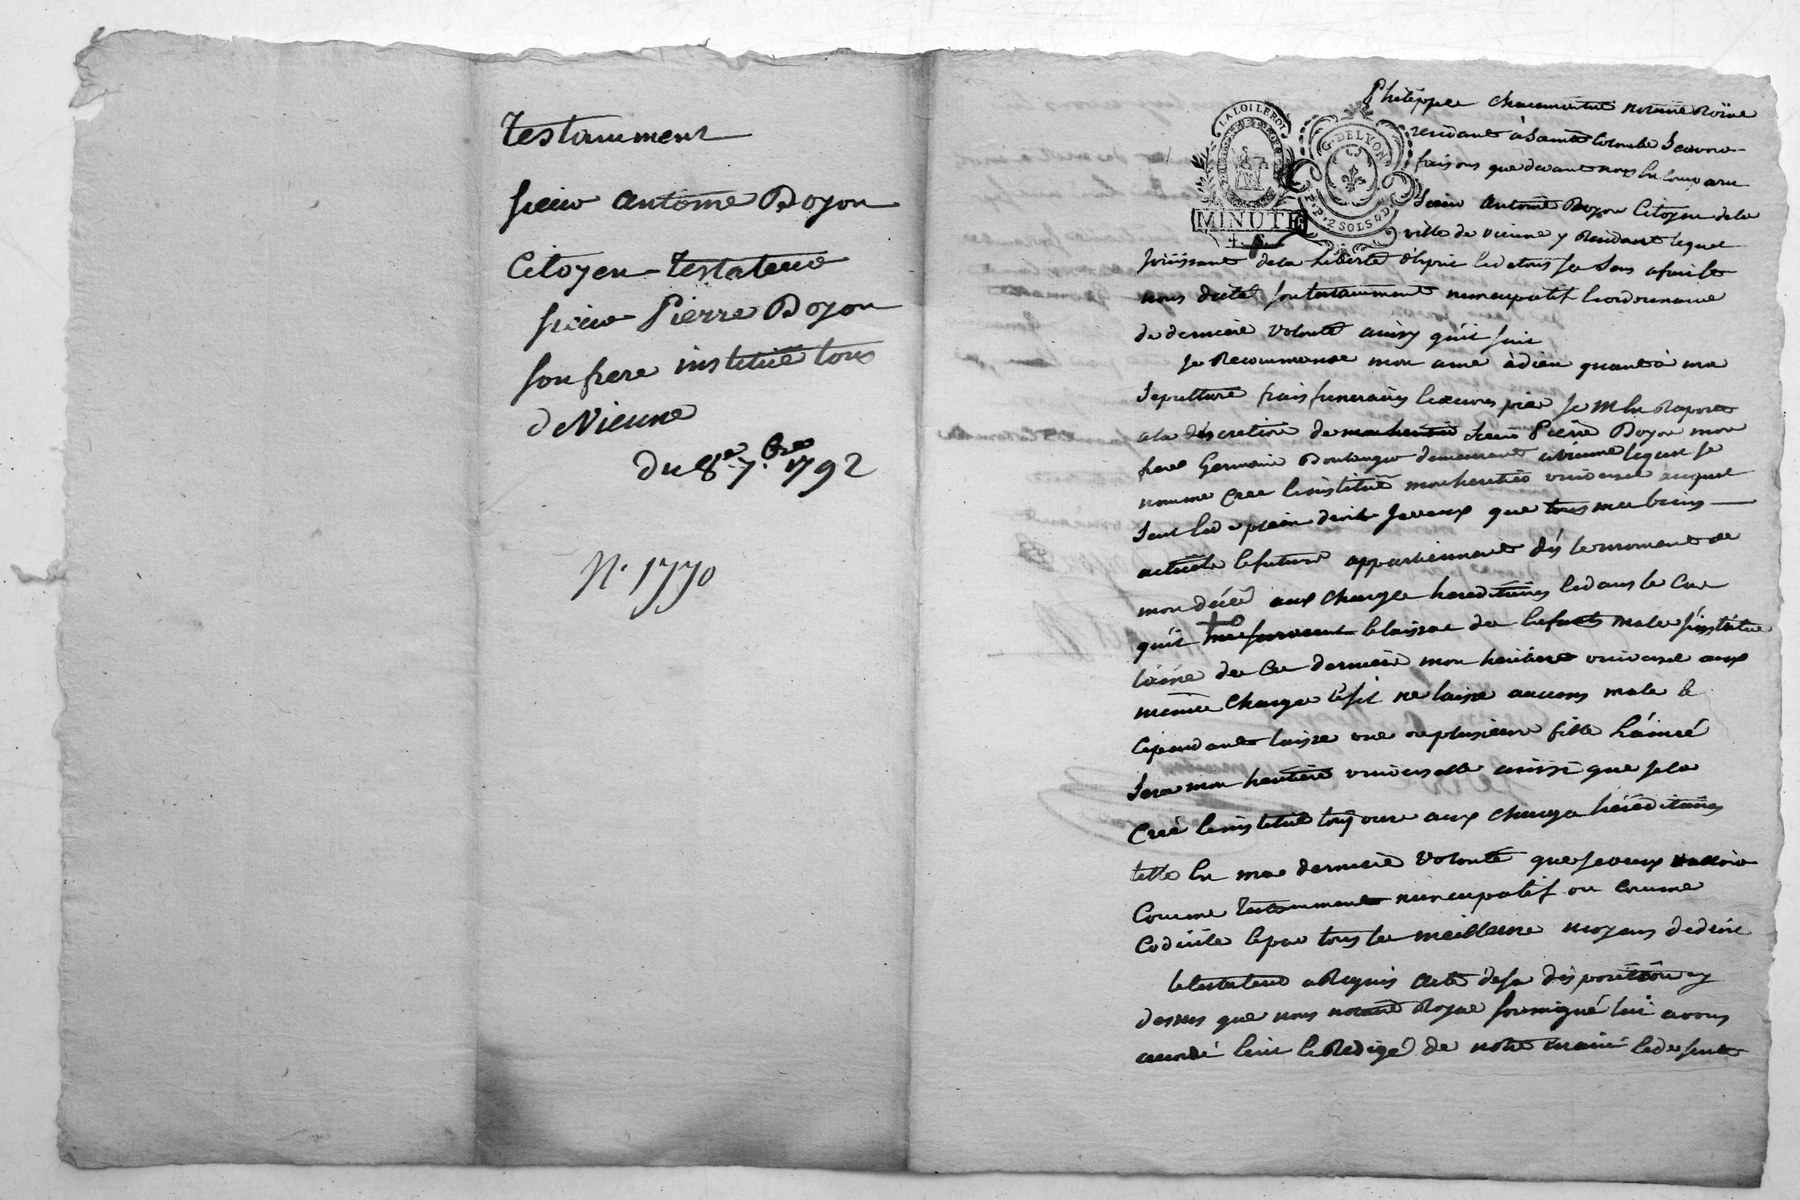 Testamment
sieur antoine Boyon
Citoyen Testateur
sieur Pierre Boyon
son frere institué tous
de Vienne
du 8e. 7.bre 1792
N. 1770
LA LOI LE ROI
MINUTE
4. S.
G. DE LYON
P.P. 2 SOLS 4 D
Philippe chaumartin notaire Roïal
residant à Sainte Colombe Scavoir
faisons que devant nous en comparu
Sieur Antoine Boyon Citoyen de la
ville de vienne y Residant lequel
joüissant de la liberté d'esprit et de tous ses Sens a fait et
nous dicté son testamment nuncupatif et ordonnance
de derniere volonté ainsy qu'il suit
Je Recommande mon ame à dieu quant à ma
Sepulture frais funeraires et œuvres pies Je m'en Raporte
a la discretion de Sieur Pierre Boyon mon
frere Germain Boulanger demeurant a vienne lequel Je
nomme Crée et institue mon heritier universel auquel
Seul et de plein droit Je veux que tous mes biens
actuels et futurs appartiennent dès le moment de
mon décés aux charges hereditaires et dans le Cas
qu'il et laissat des enfants males J'institue
l'ainé de Ces derniers mon heritier universel aux
mêmes Charges et s'il ne laisse aucuns males et
Cependant laisse une ou plusieurs filles L'ainée
Sera mon heritiere universelle ainssi que Je la
Crée et institue toujours aux charges héréditaires
telle est ma derniere volonté que Je veux valloir
Comme testamment nuncupatif ou comme
Codicile et par tous les meilleurs moyens de droit
le testateur a Requis acte de sa disposition cy
dessus que nous notaire Royal soussigné lui avons
accordé et Redigé de notre main et de suite